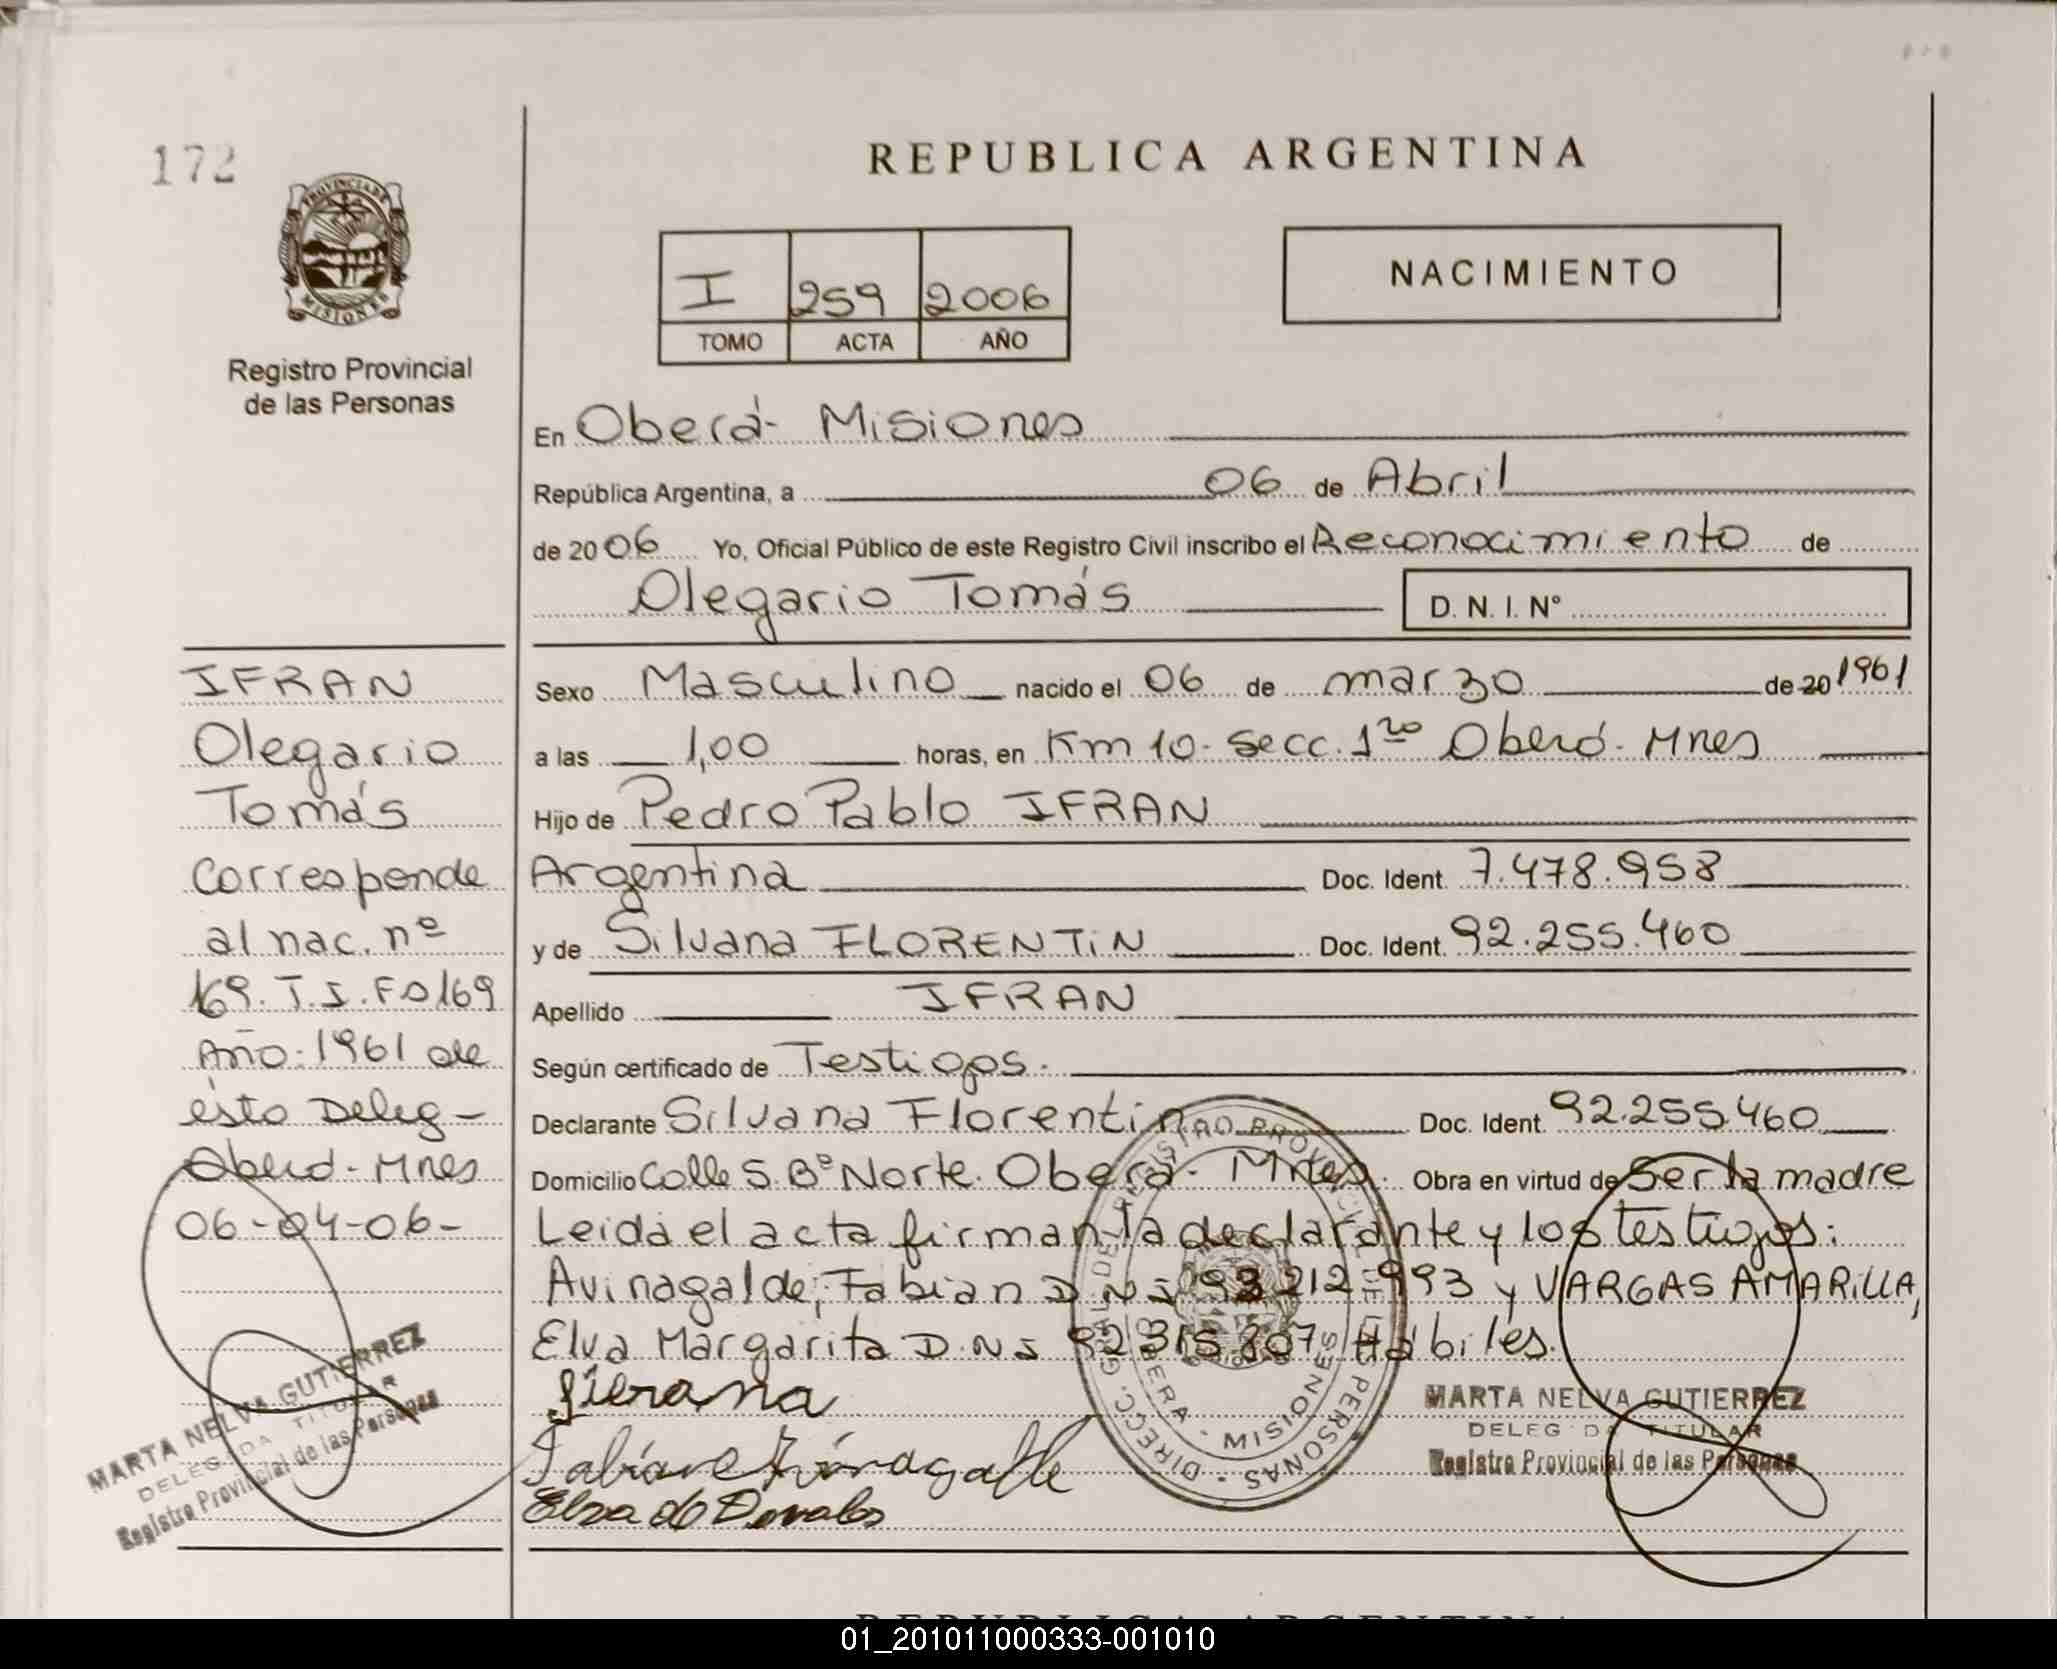 172
REPUBLICA ARGENTINA
PROVINCIA DE
MISIONES
I 259 2006
TOMO ACTA AÑO
NACIMIENTO
Registro Provincial
de las Personas
En Oberá - Misiones
República Argentina, a 06 de Abril
de 2006 Yo, Oficial Público de este Registro Civil inscribo el Reconocimiento de
Olegario Tomás D. N. I. N°
IFRAN
Olegario
Tomás
Corresponde
al nac. nº
169. T. I. Fº 169
Año: 1961 de
ésta Deleg -
Oberá - Mnes
06-04-06-
MARTA NELVA GUTIERREZ
DELEGADA TITULAR
Registro Provincial de las Personas
Sexo Masculino nacido el 06 de marzo de 20 1961
a las 1,00 horas, en Km 10 - Secc. 1ra Oberá - Mnes
Hijo de Pedro Pablo IFRAN
Argentina Doc. Ident. 7.478.958
y de Silvana FLORENTIN Doc. Ident. 92.255.460
Apellido IFRAN
Según certificado de Testigos.
Declarante Silvana Florentin Doc. Ident. 92.255.460
Domicilio Calle S. Bº Norte. Oberá - Mnes. Obra en virtud de Ser la madre
Leida el acta firman la declarante y los testigos:
Avinagalde, Fabian D N I 93 212 993 y VARGAS AMARILLA,
Elva Margarita D.N I 92 315.307 Hábiles.
DIRECC. GRAL. DEL REGISTRO PROVINCIAL DE LAS PERSONAS
OBERA - MISIONES
MARTA NELVA GUTIERREZ
DELEGADA TITULAR
Registro Provincial de las Personas
REPUBLICA ARGENTINA
01_201011000333-001010